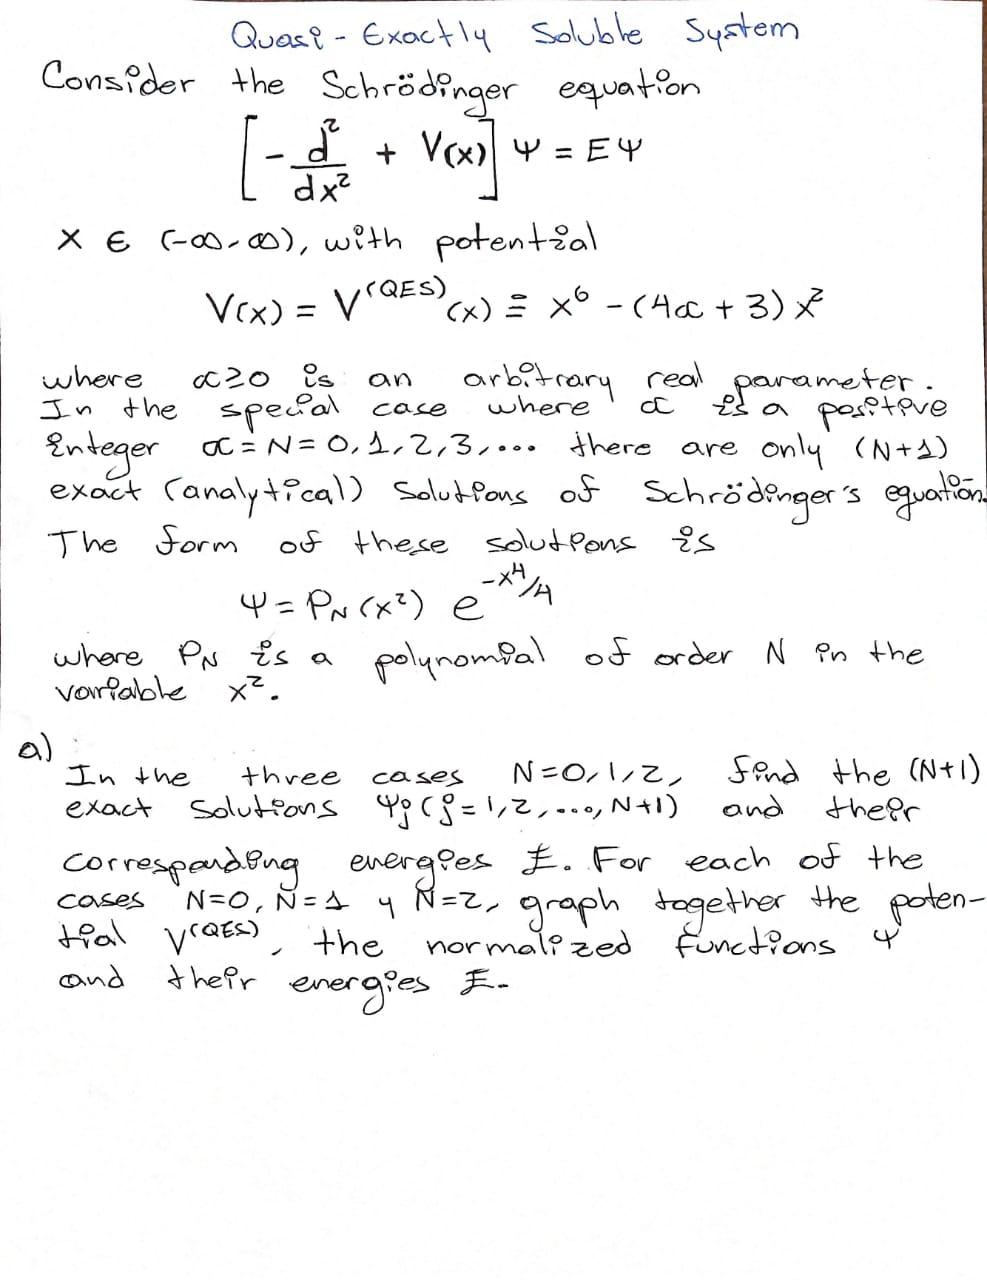 Quasi - Exactly Soluble System
Consider the Schrödinger equation
[-d²/dx² + V(x)] Ψ = EΨ
x ∈ (-∞,∞), with potential
V(x) = V^(QES)(x) ≡ x⁶ - (4α + 3) x²
where α≥0 is an arbitrary real parameter.
In the special case where α is a positive
integer α = N = 0,1,2,3,... there are only (N+1)
exact (analytical) solutions of Schrödinger's equation.
The form of these solutions is
Ψ = P_N (x²) e^(-x⁴/4)
where P_N is a polynomial of order N in the
variable x².
a)
In the three cases N=0,1,2, find the (N+1)
exact solutions Ψj (j=1,2,...,N+1) and their
corresponding energies E. For each of the
cases N=0, N=1 y N=2, graph together the poten-
tial V^(QES), the normalized functions Ψ
and their energies E.